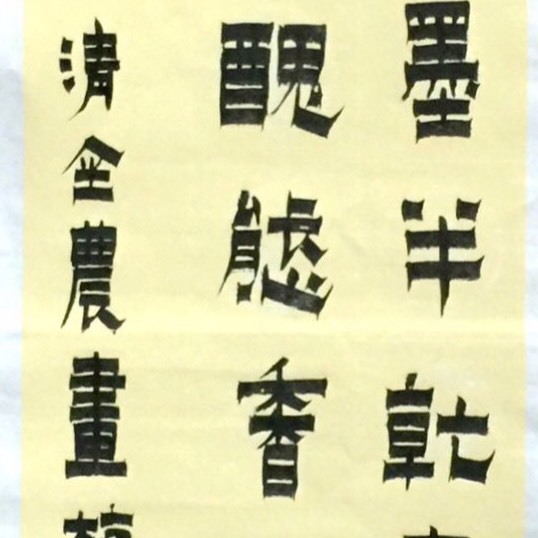 墨半乾
醜態香
清金農畫